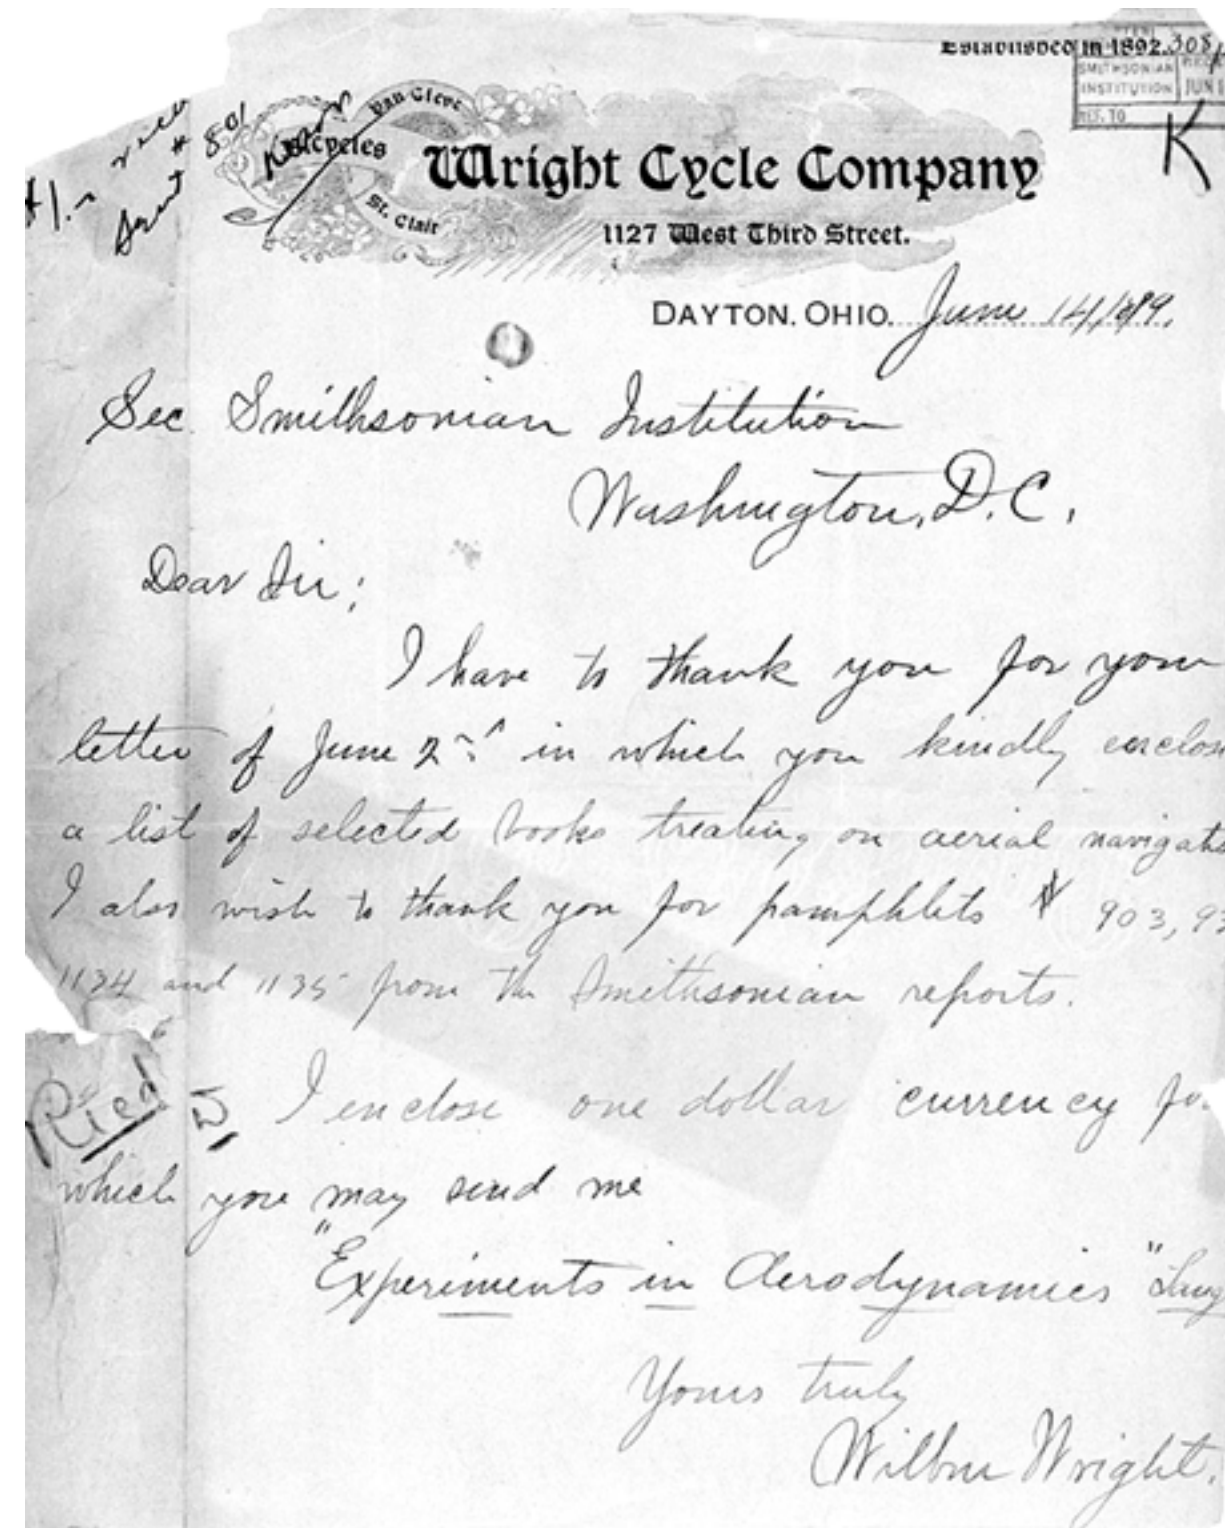 Established in 1892.
308
SMITHSONIAN
INSTITUTION
JUN 1
REF. TO
K
Van Cleve
Bicycles
St. Clair
#1.-
Sent # 801
Wright Cycle Company
1127 West Third Street.
DAYTON. OHIO. June 14/99.
Sec. Smithsonian Institution
Washington, D.C.
Dear Sir;
I have to thank you for your
letter of June 2nd in which you kindly enclos
a list of selected books treating on aerial navigat
I also wish to thank you for pamphlets # 903, 93
1134 and 1135 from the Smithsonian reports.
I enclose one dollar currency fo
which you may send me
"Experiments in Aerodynamics" Lang
Yours truly
Wilbur Wright.